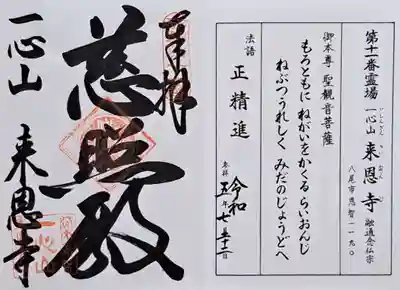 奉拝
慈照殿
一心山
来恩寺
第十一番霊場
いっしんざん らいおんじ
一心山 来恩寺 融通念仏宗
八尾市恩智一一九〇
御本尊 聖観音菩薩
もろともに ねがいをかくる らいおんじ
ねぶつうれしく みだのじょうどへ
法語 正精進
奉拝 令和
五年 七月